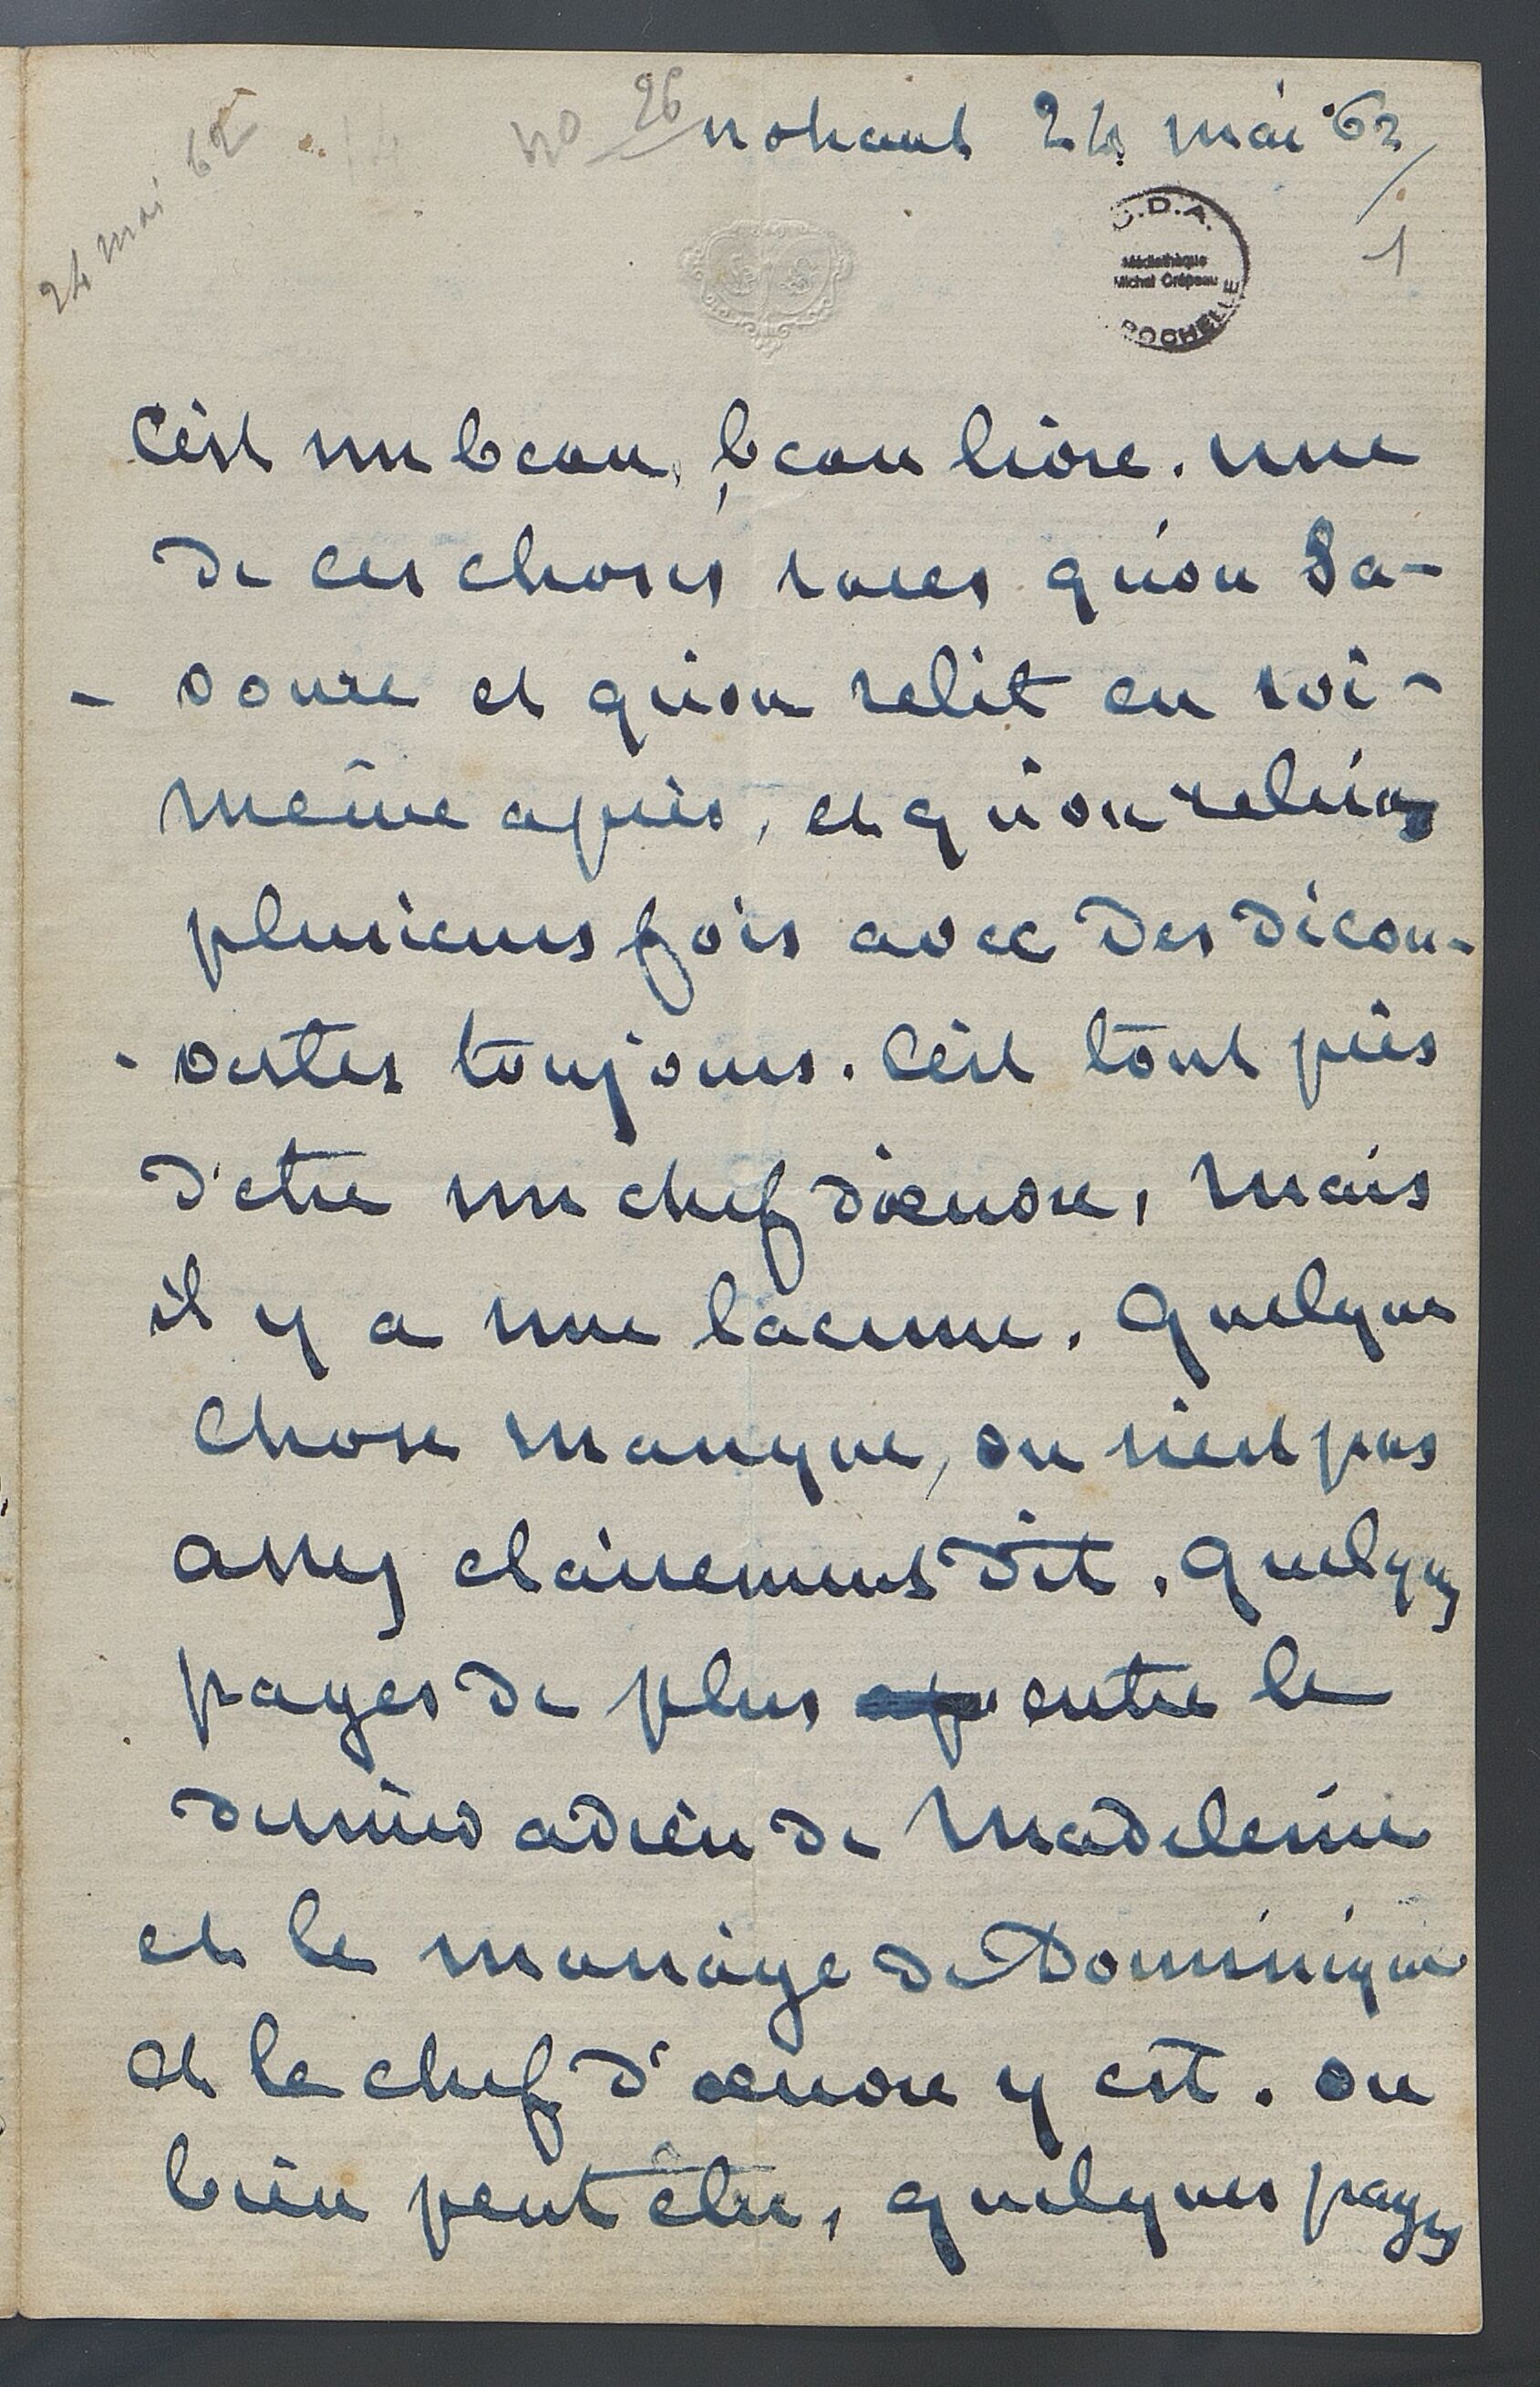 24 mai 62
no 26
nohant 24 mai 62
1
Médiathèque
Michel Crépeau
C'est un beau, beau livre. une
de ces choses rares qu'on sa-
- voure et qu'on relit en soi-
même après, et qu'on relira
plusieurs fois avec des décou-
- vertes toujours. C'est tout près
d'etre un chef d'œuvre, mais
il y a une lacune. Quelque
chose manque, ou n'est pas
assez clairement dit. Quelques
pages de plus entre le
dernier adieu de Madeleine
et le mariage de Dominique
et le chef d'œuvre y est. ou
bien peut être, quelques pages